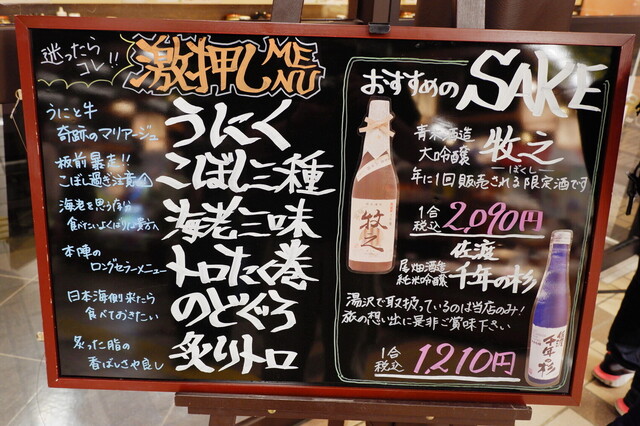 迷ったら
コレ!!
激押し MENU
うにと牛
奇跡のマリアージュ
うにく
板前暴走!!
こぼし過ぎ注意
こぼし三種
海老を思う存分
食べたいよくばりな貴方へ
海老三味
本陣の
ロングセラーメニュー
トロたく巻
日本海側来たら
食べておきたい
のどぐろ
炙った脂の
香ばしさや良し
炙りトロ
おすすめのSAKE
青木酒造
大吟醸 牧之
ぼくし
年に1回販売される限定酒です
1合
税込 2,090円
牧之
佐渡
尾畑酒造
純米吟醸 千年の杉
湯沢で取扱っているのは当店のみ!
旅の想い出に是非ご賞味下さい
1合
税込 1,210円
千年の杉